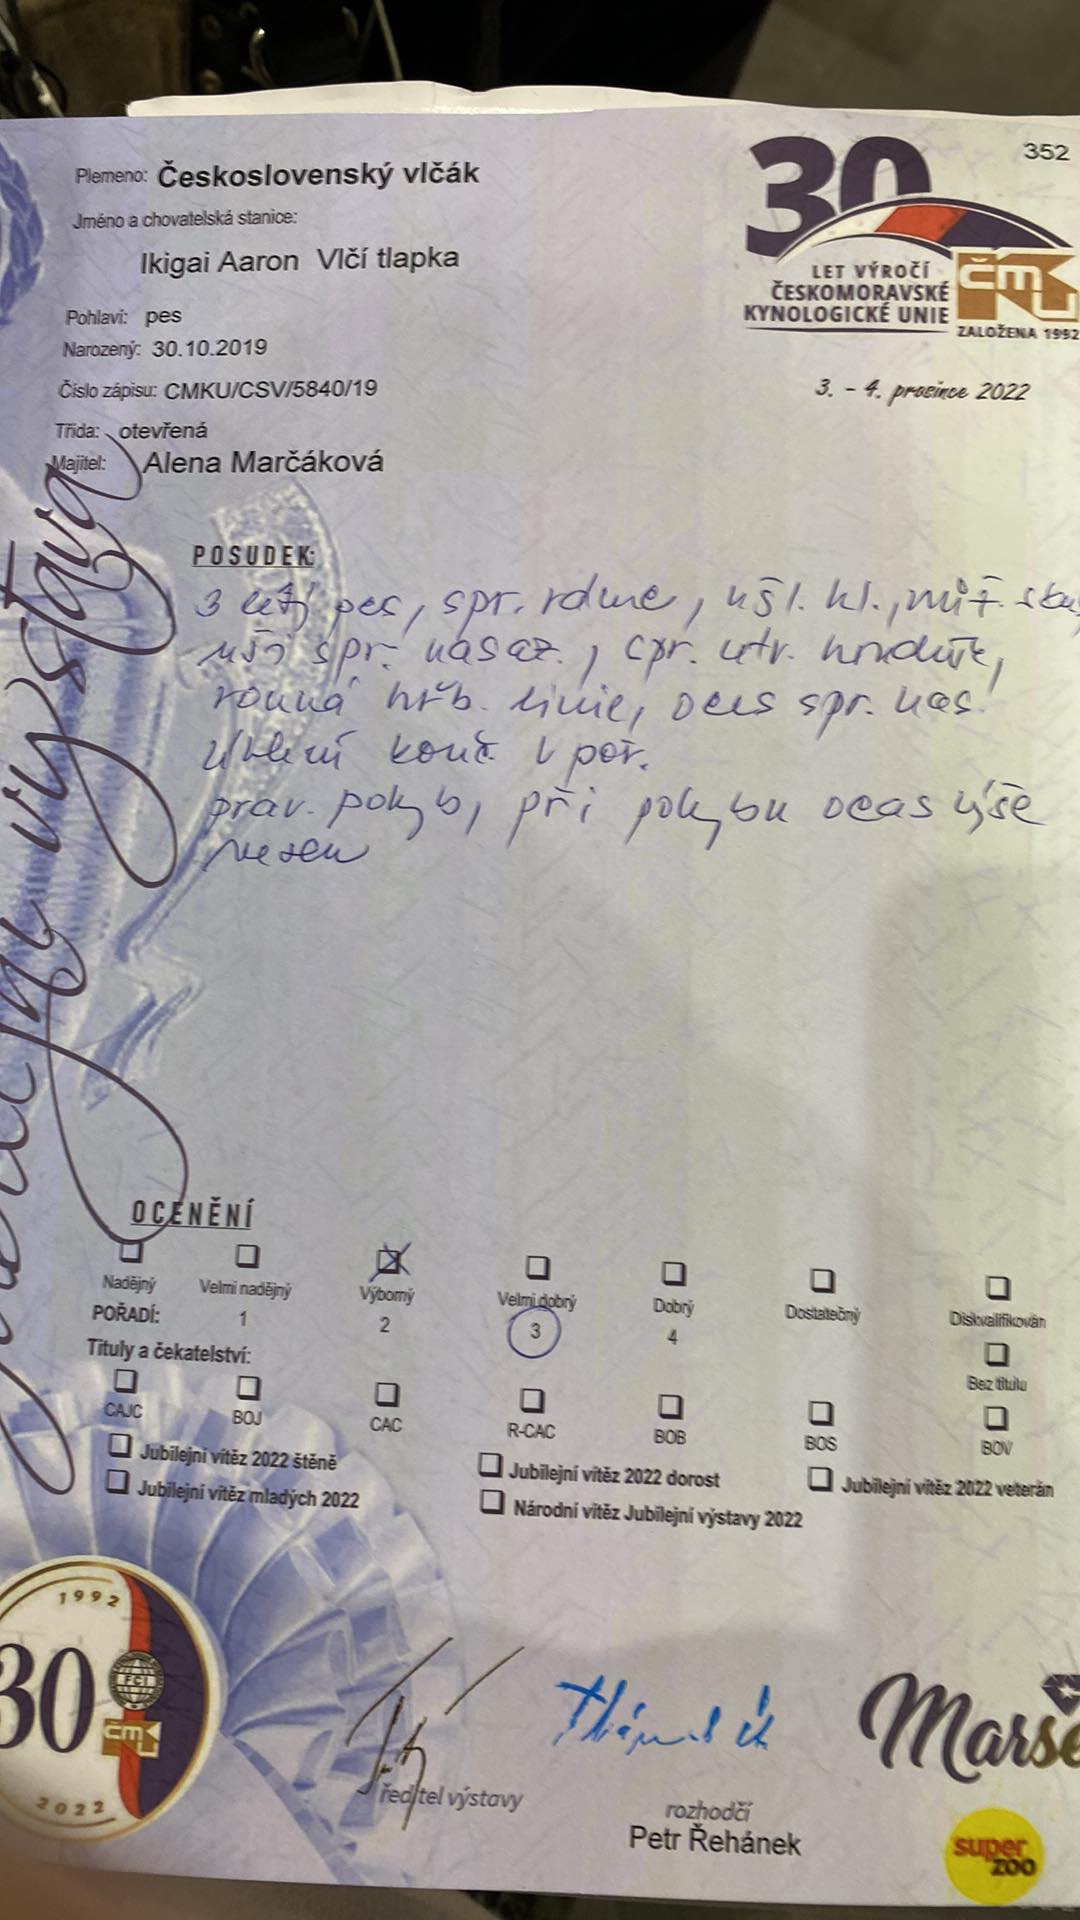 352
Plemeno: Československý vlčák
Jméno a chovatelská stanice:
Ikigai Aaron Vlčí tlapka
Pohlaví: pes
Narozený: 30.10.2019
Číslo zápisu: CMKU/CSV/5840/19
Třída: otevřená
Majitel: Alena Marčáková
30
LET VÝROČÍ
ČESKOMORAVSKÉ
KYNOLOGICKÉ UNIE
ČMKU
ZALOŽENA 1992
3. - 4. prosince 2022
výstava
POSUDEK:
3 letý pes, spr. rdme, ušl. hl., nůž. sku
uši spr. nasaz., spr. utv. hrudník,
rovná hřb. linie, ocas spr. nas.
úhlení konč. v poř.
prav. pohyb, při pohybu ocas výše
nesen
OCENĚNÍ
Nadějný Velmi nadějný Výborný Velmi dobrý Dobrý Dostatečný Diskvalifikován
POŘADÍ: 1 2 3 4
Bez titulu
Tituly a čekatelství:
CAJC BOJ CAC R-CAC BOB BOS BOV
Jubilejní vítěz 2022 štěně Jubilejní vítěz 2022 dorost Jubilejní vítěz 2022 veterán
Jubilejní vítěz mladých 2022 Národní vítěz Jubilejní výstavy 2022
1992
30
FCI
ČMKU
2022
ředitel výstavy
rozhodčí
Petr Řehánek
Marse
super
zoo